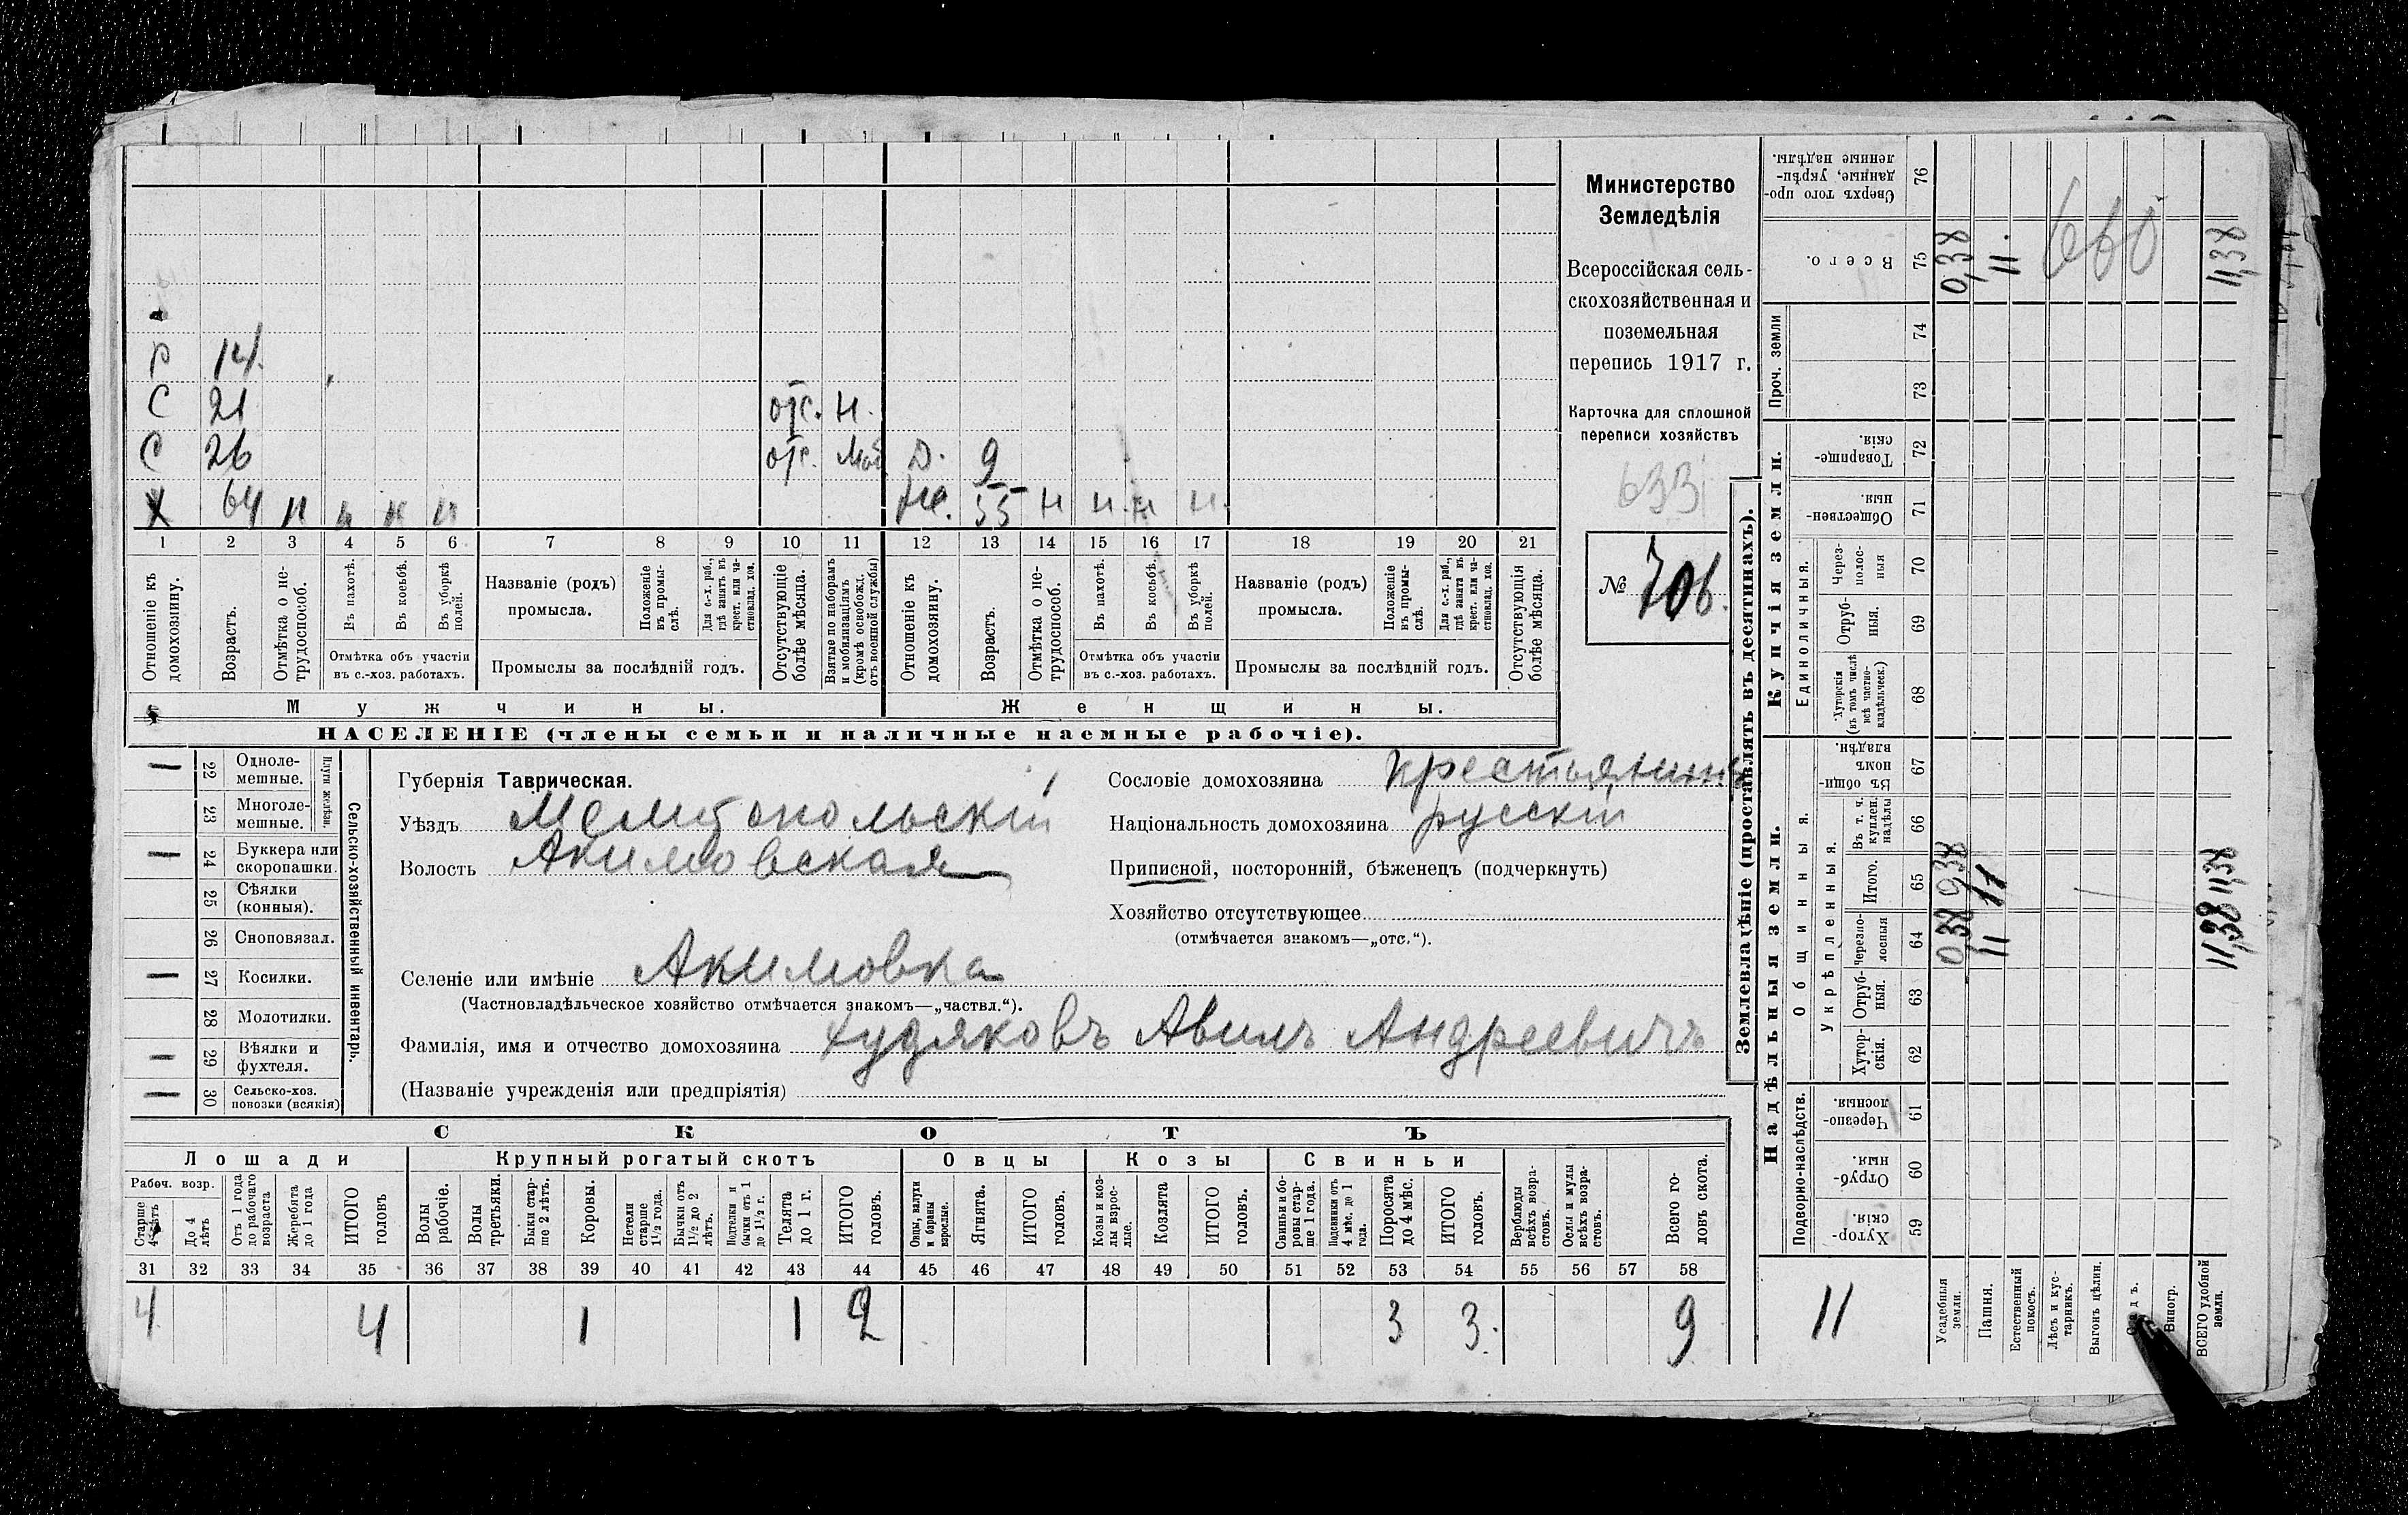 Министерство
Земледѣлія
Всероссійская сель-
скохозяйственная и
поземельная
перепись 1917 г.
Карточка для сплошной
переписи хозяйствъ
633
№ 706.
Р 14.
С 21 отс. н.
С 26 отс. Моб. Д. 9
Х 64 н н н н Же. 55 н н. н н.
1 2 3 4 5 6 7 8 9 10 11 12 13 14 15 16 17 18 19 20 21
Отношеніе къ домохозяину.
Возрастъ.
Отмѣтка о не-трудоспособ.
Въ пахотѣ.
Въ косьбѣ.
Въ уборкѣ полей.
Отмѣтка объ участіи
въ с.-хоз. работахъ.
Названіе (родъ)
промысла.
Положеніе въ промы-слѣ.
Для с.-х. раб., гдѣ занятъ въ крест. или ча-стновлад. хоз.
Промыслы за послѣдній годъ.
Отсутствующіе болѣе мѣсяца.
Взятые по наборамъ и мобилизаціямъ (кромѣ освобожд. отъ военной службы)
Отношеніе къ домохозяину.
Возрастъ.
Отмѣтка о не-трудоспособ.
Въ пахотѣ.
Въ косьбѣ.
Въ уборкѣ полей.
Отмѣтка объ участіи
въ с.-хоз. работахъ.
Названіе (родъ)
промысла.
Положеніе въ промы-слѣ.
Для с.-х. раб., гдѣ занята въ крест. или ча-стновлад. хоз.
Промыслы за послѣдній годъ.
Отсутствующія болѣе мѣсяца.
Мужчины.
Женщины.
НАСЕЛЕНІЕ (члены семьи и наличные наемные рабочіе).
Сельско-хозяйственный инвентарь.
Плуги желѣзн.
— 22 Одноле-мешные.
23 Многоле-мешные.
— 24 Буккера или скоропашки.
25 Сѣялки (конныя).
26 Сноповязал.
— 27 Косилки.
28 Молотилки.
— 29 Вѣялки и фухтеля.
— 30 Сельско-хоз. повозки (всякія)
Губернія Таврическая.
Уѣздъ Мелитопольскій
Волость Акимовская
Селеніе или имѣніе Акимовка
(Частновладѣльческое хозяйство отмѣчается знакомъ—„частвл.“).
Фамилія, имя и отчество домохозяина Худяковъ Авилъ Андреевичъ
(Названіе учрежденія или предпріятія)
Сословіе домохозяина крестьянинъ
Національность домохозяина русскій
Приписной, посторонній, бѣженецъ (подчеркнуть)
Хозяйство отсутствующее
(отмѣчается знакомъ—„отс.“).
СКОТЪ
Лошади
Крупный рогатый скотъ
Овцы
Козы
Свиньи
Рабоч. возр.
Старше 4 лѣтъ
До 4 лѣтъ
Отъ 1 года до рабочаго возраста
Жеребята до 1 года
ИТОГО головъ
Волы рабочіе.
Волы третьяки.
Быки стар-ше 2 лѣтъ.
Коровы.
Нетели старше 1½ года.
Бычки отъ 1½ до 2 лѣтъ.
Подтелки и бычки отъ 1 до 1½ г.
Телята до 1 г.
ИТОГО головъ.
Овцы, валухи и бараны взрослые.
Ягнята.
ИТОГО головъ.
Козы и коз-лы взрос-лые.
Козлята
ИТОГО головъ.
Свиньи и бо-ровы стар-ше 1 года.
Подсвинки отъ 4 мѣс. до 1 года.
Поросята до 4 мѣс.
ИТОГО головъ.
Верблюды всѣхъ возра-стовъ.
Ослы и мулы всѣхъ возра-стовъ.
Всего го-ловъ скота.
31 32 33 34 35 36 37 38 39 40 41 42 43 44 45 46 47 48 49 50 51 52 53 54 55 56 57 58
4 4 1 1 2 3 3. 9
Землевладѣніе (проставлять въ десятинахъ).
Надѣльныя земли.
Купчія земли.
Проч. земли
Подворно-наслѣдств.
Общинныя.
Укрѣпленныя.
Единоличныя.
Хутор-скія. 59
Отруб-ныя. 60
Черезпо-лосныя. 61
Хутор-скія. 62
Отруб-ныя. 63
Черезпо-лосныя 64
Итого. 65
Въ т. ч. куплен. надѣлы 66
Въ общи-номъ владѣн. 67
Хуторскія (въ томъ числѣ всѣ частно-владѣльческ.) 68
Отруб-ныя. 69
Через-полос-ныя 70
Обществен-ныя. 71
Товарище-скія. 72
73
74
Всего. 75
Сверхъ того про-данные, укрѣп-ленные надѣлы. 76
11
Усадебныя земли. 0,38 0,38 0,38
Пашня. 11 11 11.
Естественный покосъ.
Лѣсъ и кус-тарникъ.
Выгонъ цѣлин.
Садъ.
Виногр.
ВСЕГО удобной земли. 11,38 11,38 11,38
660